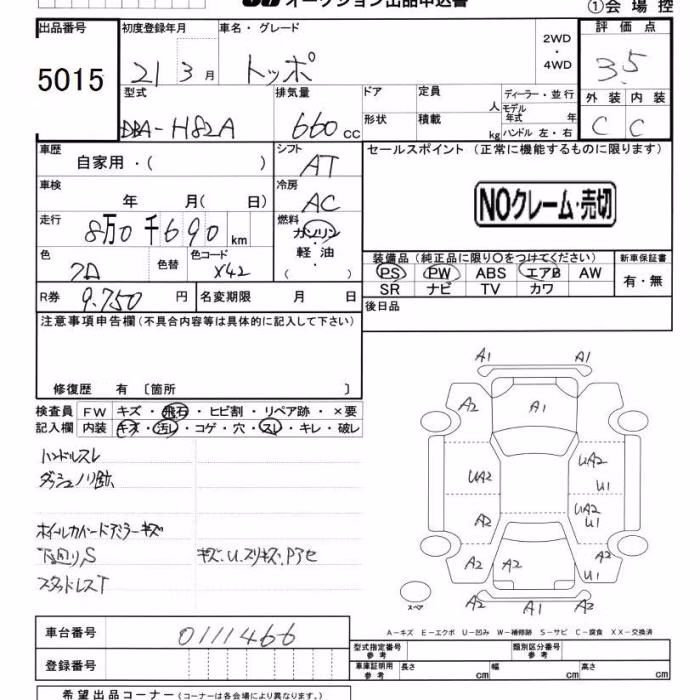 オークション出品申込書
①会場控
出品番号
5015
初度登録年月
21 3月
車名・グレード
トッポ
2WD
・
4WD
評価点
3.5
型式
DBA-H82A
排気量
660cc
ドア
形状
定員
人
積載
kg
ディーラー・並行
モデル年式 年
ハンドル 左・右
外装 内装
C C
車歴
自家用・( )
シフト
AT
セールスポイント (正常に機能するものに限ります)
NOクレーム・売切
車検
年 月( 日)
冷房
AC
走行
8万0千690km
燃料
ガソリン
・
軽油
( ・ )
色
クロ
色替
色コード
X42
装備品 (純正品に限り〇をつけてください)
PS PW ABS エアB AW
SR ナビ TV カワ
新車保証書
有・無
R券 9.750円
名変期限 月 日
後日品
注意事項申告欄(不具合内容等は具体的に記入して下さい)
修復歴 有 〔箇所 〕
検査員
記入欄
FW キズ・飛石・ヒビ割・リペア跡・×要
内装 キズ・汚レ・コゲ・穴・スレ・キレ・破レ
ハンドルスレ
ダッシュノリ跡
ホイールカバードアミラーキズ
下回りS キズ.U.スリキズ.Pアセ
スタッドレスT
A1 A1
A2 A1
UA2 U1
UA2 UA2 U1
A2
A2 A2 A2 U1
スペア
A2 A1 A2
A-キズ E-エクボ U-凹み W-補修跡 S-サビ C-腐食 XX-交換済
車台番号 0111466
登録番号
型式指定番号
参考
類別区分番号
参考
車庫証明用
参考
長さ cm 幅 cm 高さ cm
希望出品コーナー (コーナーは各会場により異なります。)